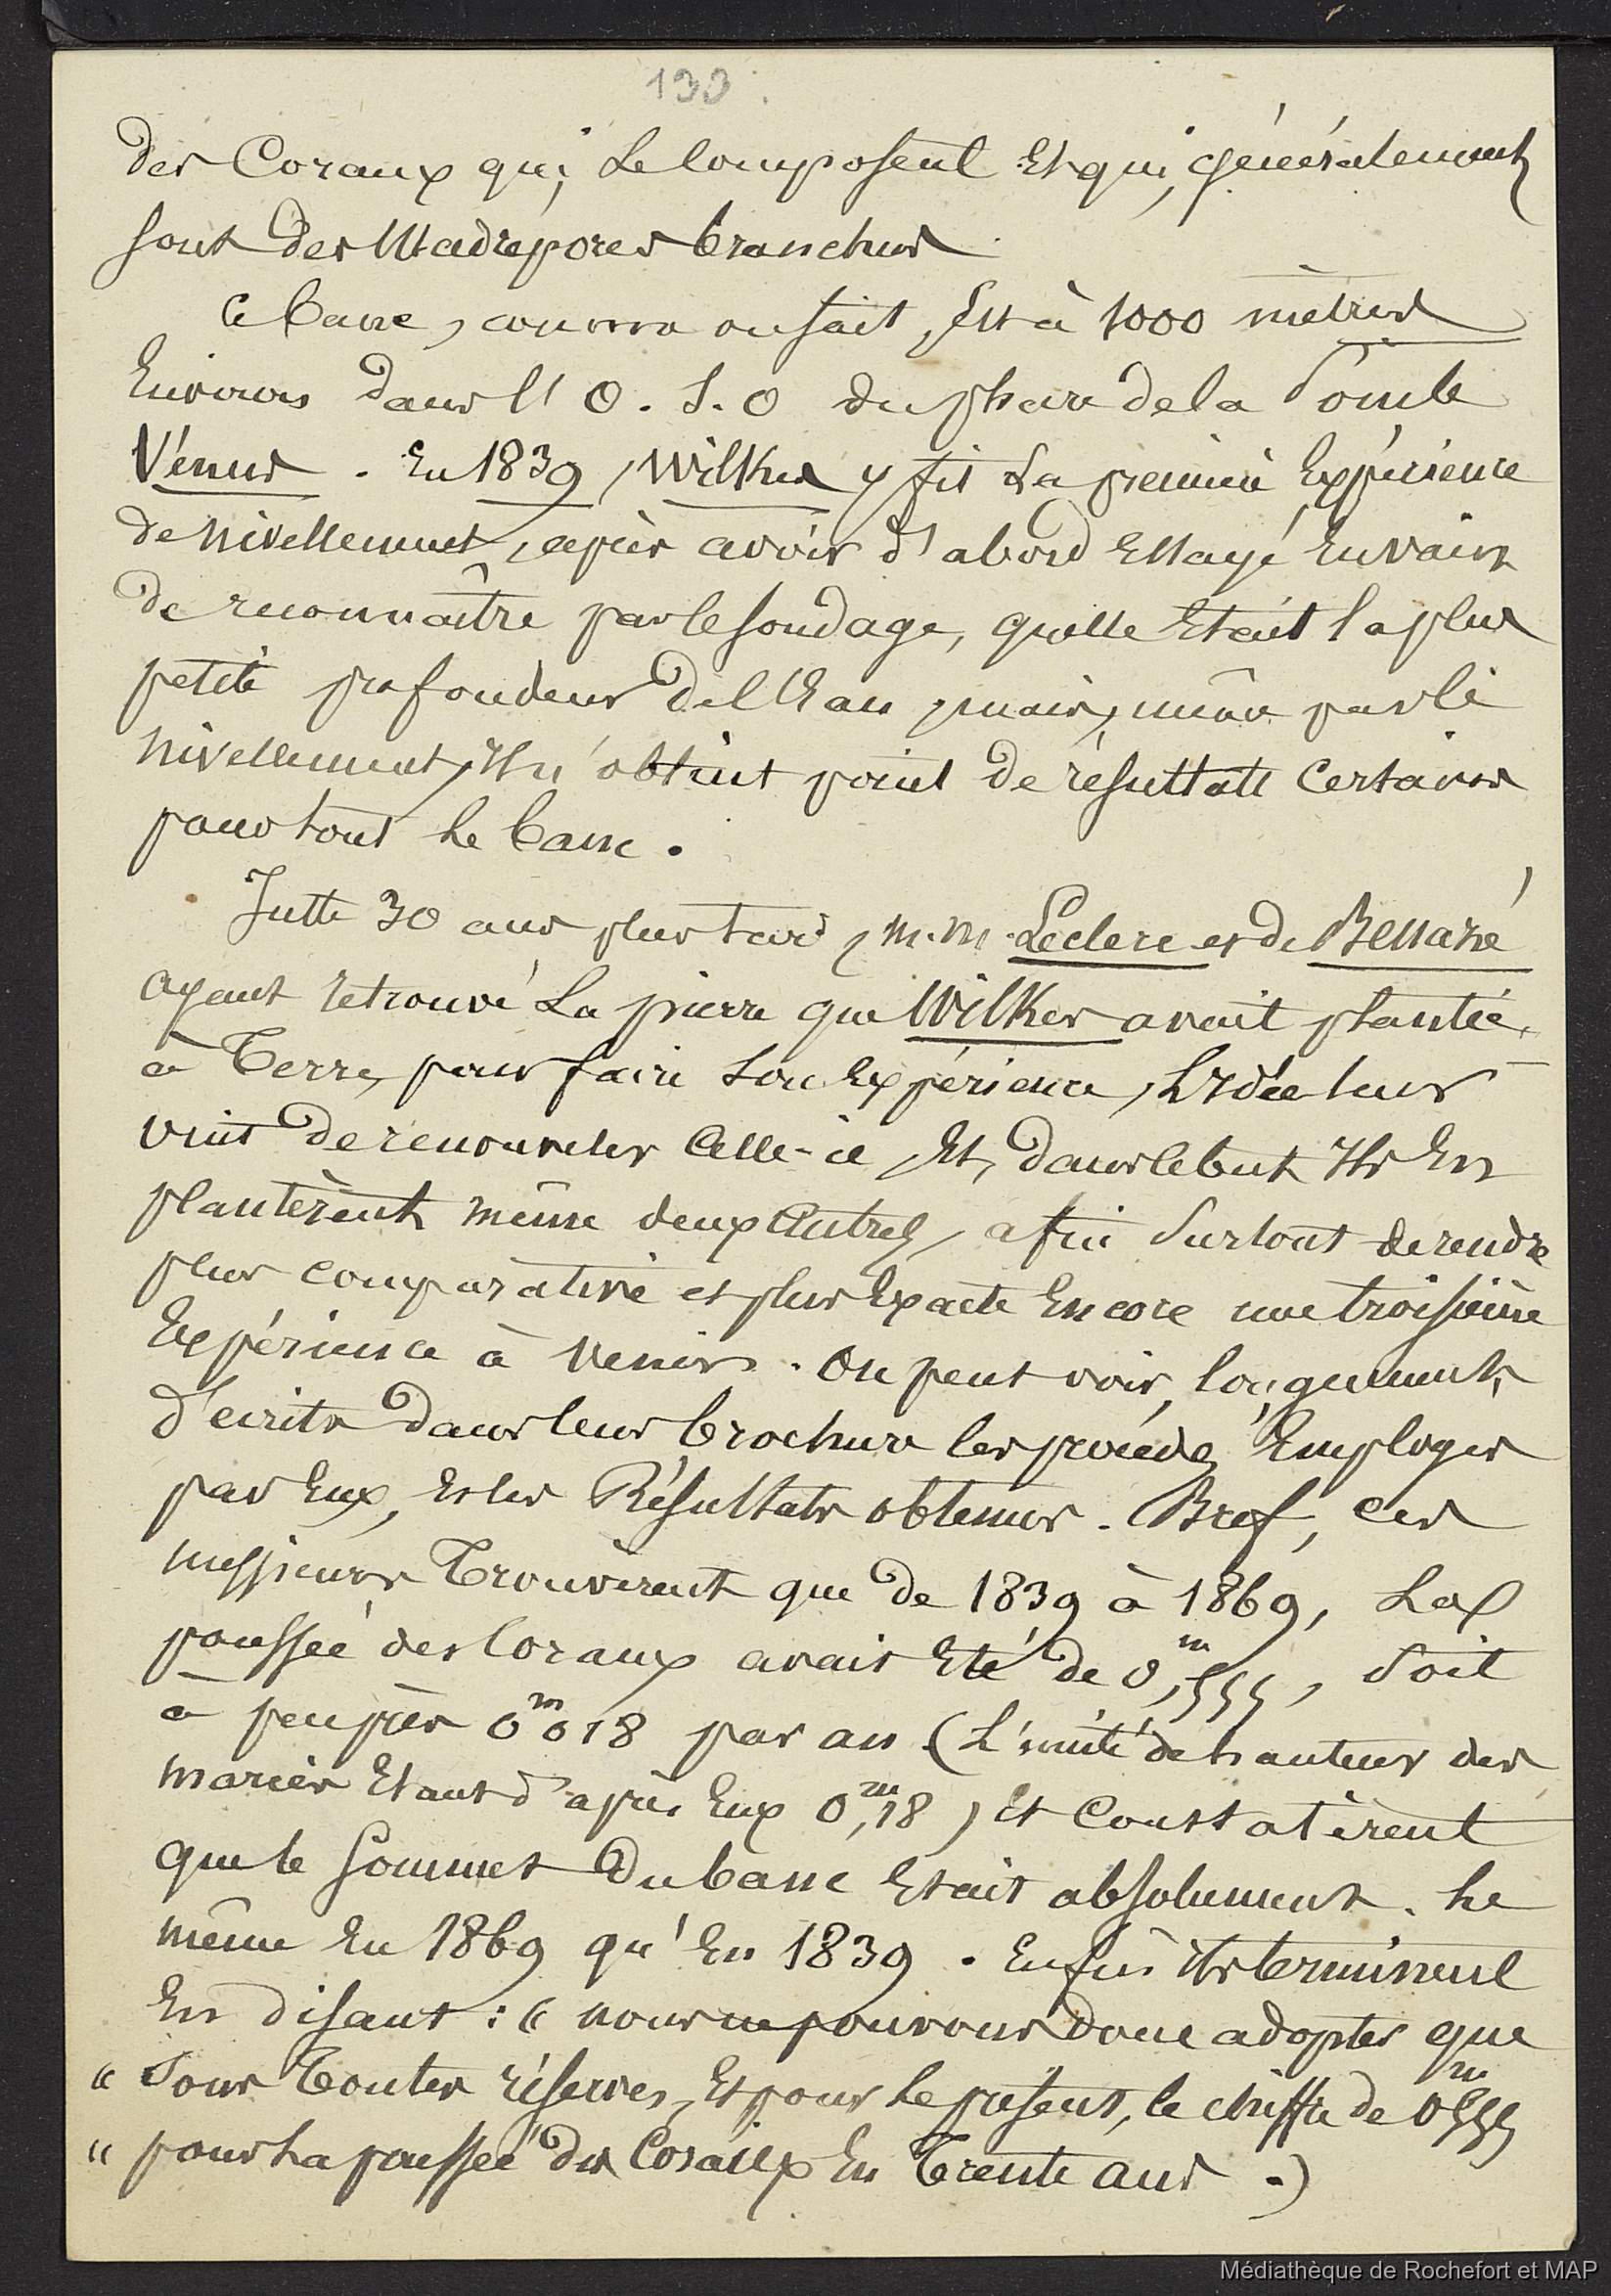 133.
des Coraux qui le composent et qui, généralement
sont des Madrépores branchus.
Ce banc, comme on sait, est à 1000 mètres
Environ dans l'O.S.O du phare de la Pointe
Vénus. En 1839, Wilkes y fit la première Expérience
de nivellement, après avoir d'abord Essayé En vain
de reconnaître par le sondage, quelle Etait la plus
petite profondeur de l'Eau, mais, même par le
nivellement, Il n'obtint point de résultats Certains
pour tout le banc.
Juste 30 ans plus tard, M.M. Leclerc et de Bénazé
ayant retrouvé La pierre que Wilkes avait plantée,
à Terre, pour faire son Expérience, L'Idée leur
vint de renouveler Celle-ci, Et, dans le but Ils En
plantèrent même deux Autres, afin surtout de rendre
plus comparative et plus Exacte Encore une troisième
Expérience à venir. On peut voir, longuement,
d'écrits dans leur brochure les procédés Employés
par Eux, Et les Résultats obtenus. Bref, ces
messieurs Trouvèrent que de 1839 à 1869, La
poussée des Coraux avait Eté de 0,m555, soit
à peu près 0m018 par an (L'unité de hauteur des
marées Etant d'après Eux 0,m18) Et Constatèrent
que le sommet du banc Etait absolument. le
même En 1869 qu'En 1839. Enfin Ils terminent
En disant : « nous ne pouvons donc adopter que
« sous Toutes réserves, Et pour le présent, le chiffre de 0m555
« pour la poussée des Coraux En Trente ans.)
Médiathèque de Rochefort et MAP